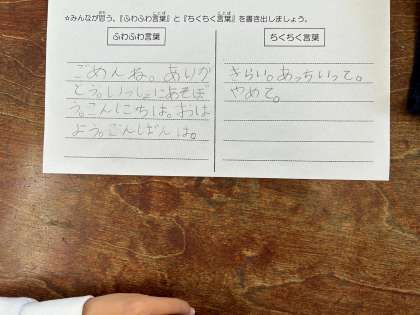 ☆みんなが思う、『ふわふわ言葉』と『ちくちく言葉』を書き出しましょう。
ふわふわ言葉
ごめんね。ありが
とう。いっしょにあそぼ
う。こんにちは。おは
よう。こんばんは。
ちくちく言葉
きらい。あっちいって。
やめて。